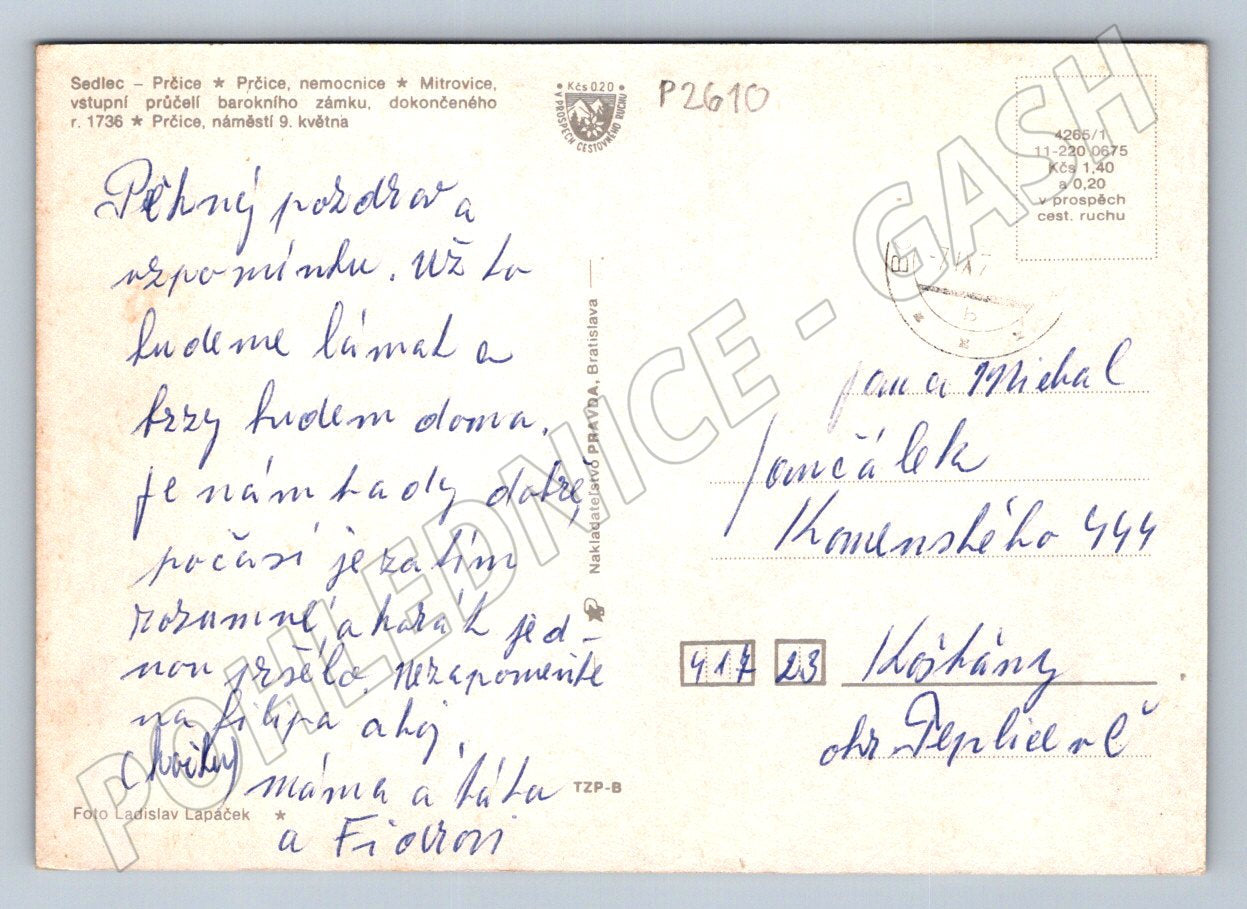 Sedlec – Prčice ★ Prčice, nemocnice ★ Mitrovice,
vstupní průčelí barokního zámku, dokončeného
r. 1736 ★ Prčice, náměstí 9. května
• Kčs 0.20 •
V PROSPĚCH CESTOVNÉHO RUCHU
P2610
4265/1
11-220 0675
Kčs 1,40
a 0,20
v prospěch
cest. ruchu
Pěkný pozdrav a
vzpomínku. Už to
budeme lámat a
brzy budem doma.
Je nám tady dobře,
počasí je zatím
rozumné a
jed-
nou pršelo. Nezapomeňte
na Filipa ahoj,
máma a táta
a
Nakladateľstvo PRAVDA, Bratislava
b
Jana Michal
Jančálek
Komenského 444
417 23 Košťany
okr. Teplice v Č
TZP-B
Foto Ladislav Lapáček ★
POHLEDNICE - GASH